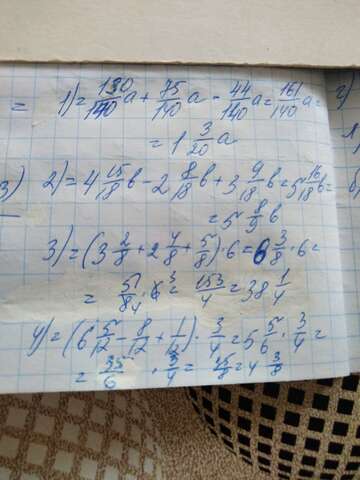 = 1) = 130/140 a + 75/140 a - 44/140 a = 161/140 a =
= 1 3/20 a
3) 2) = 4 15/18 b - 2 8/18 b + 3 9/18 b = 5 16/18 b =
= 5 8/9 b
3) = (3 2/8 + 2 4/8 + 5/8) · 6 = 6 3/8 · 6 =
= 51/8 4 · 6 3 = 153/4 = 38 1/4
4) = (6 5/12 - 8/12 + 1/12) · 3/4 = 5 5/6 · 3/4 =
= 35/6 · 3/4 =